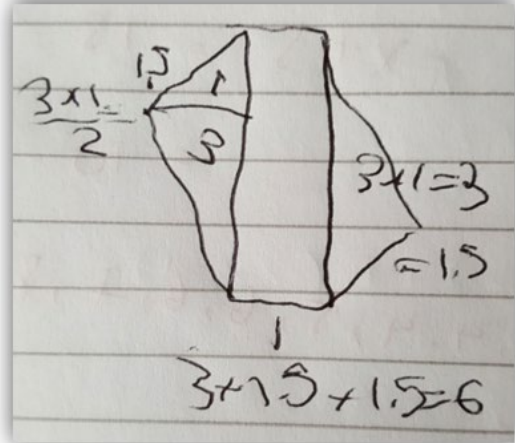 1.5
3×1
2
1
3
3×1=3
=1.5
1
3+1.5+1.5=6